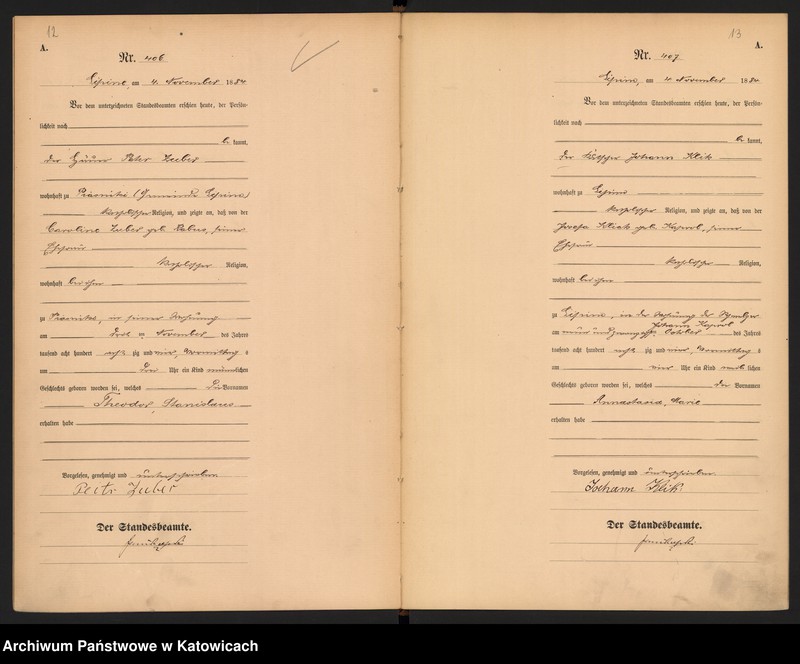 12
A.
Nr. 406
am 4. November 1884
Vor dem unterzeichneten Standesbeamten erschien heute, der Persön-
lichkeit nach
be kannt,
der Peter Zuber
wohnhaft zu Piasniki (Gemeinde Lipine)
katholischer Religion, und zeigte an, daß von der
Caroline Zuber geb. seiner
Ehefrau
katholischer Religion,
wohnhaft bei ihm
zu Piasniki, in seiner Wohnung
am November des Jahres
tausend acht hundert acht zig und vier, Vormittag s
um drei Uhr ein Kind männlichen
Geschlechts geboren worden sei, welches die Vornamen
Theodor, Stanislaus
erhalten habe
Vorgelesen, genehmigt und unterschrieben
Peter Zuber
Der Standesbeamte.
13
A.
Nr. 407
Lipine, am 4. November 1884
Vor dem unterzeichneten Standesbeamten erschien heute, der Persön-
lichkeit nach
be kannt,
der Johann Klik
wohnhaft zu Lipine
katholischer Religion, und zeigte an, daß von der
Josefa Klik geb. seiner
Ehefrau
katholischer Religion,
wohnhaft bei ihm
zu Lipine, in der Wohnung des
Johann
am neun und zwanzigsten October des Jahres
tausend acht hundert acht zig und vier, Vormittag s
um vier Uhr ein Kind weib lichen
Geschlechts geboren worden sei, welches die Vornamen
Annastasia, Marie
erhalten habe
Vorgelesen, genehmigt und unterschrieben
Johann Klik
Der Standesbeamte.
Archiwum Państwowe w Katowicach